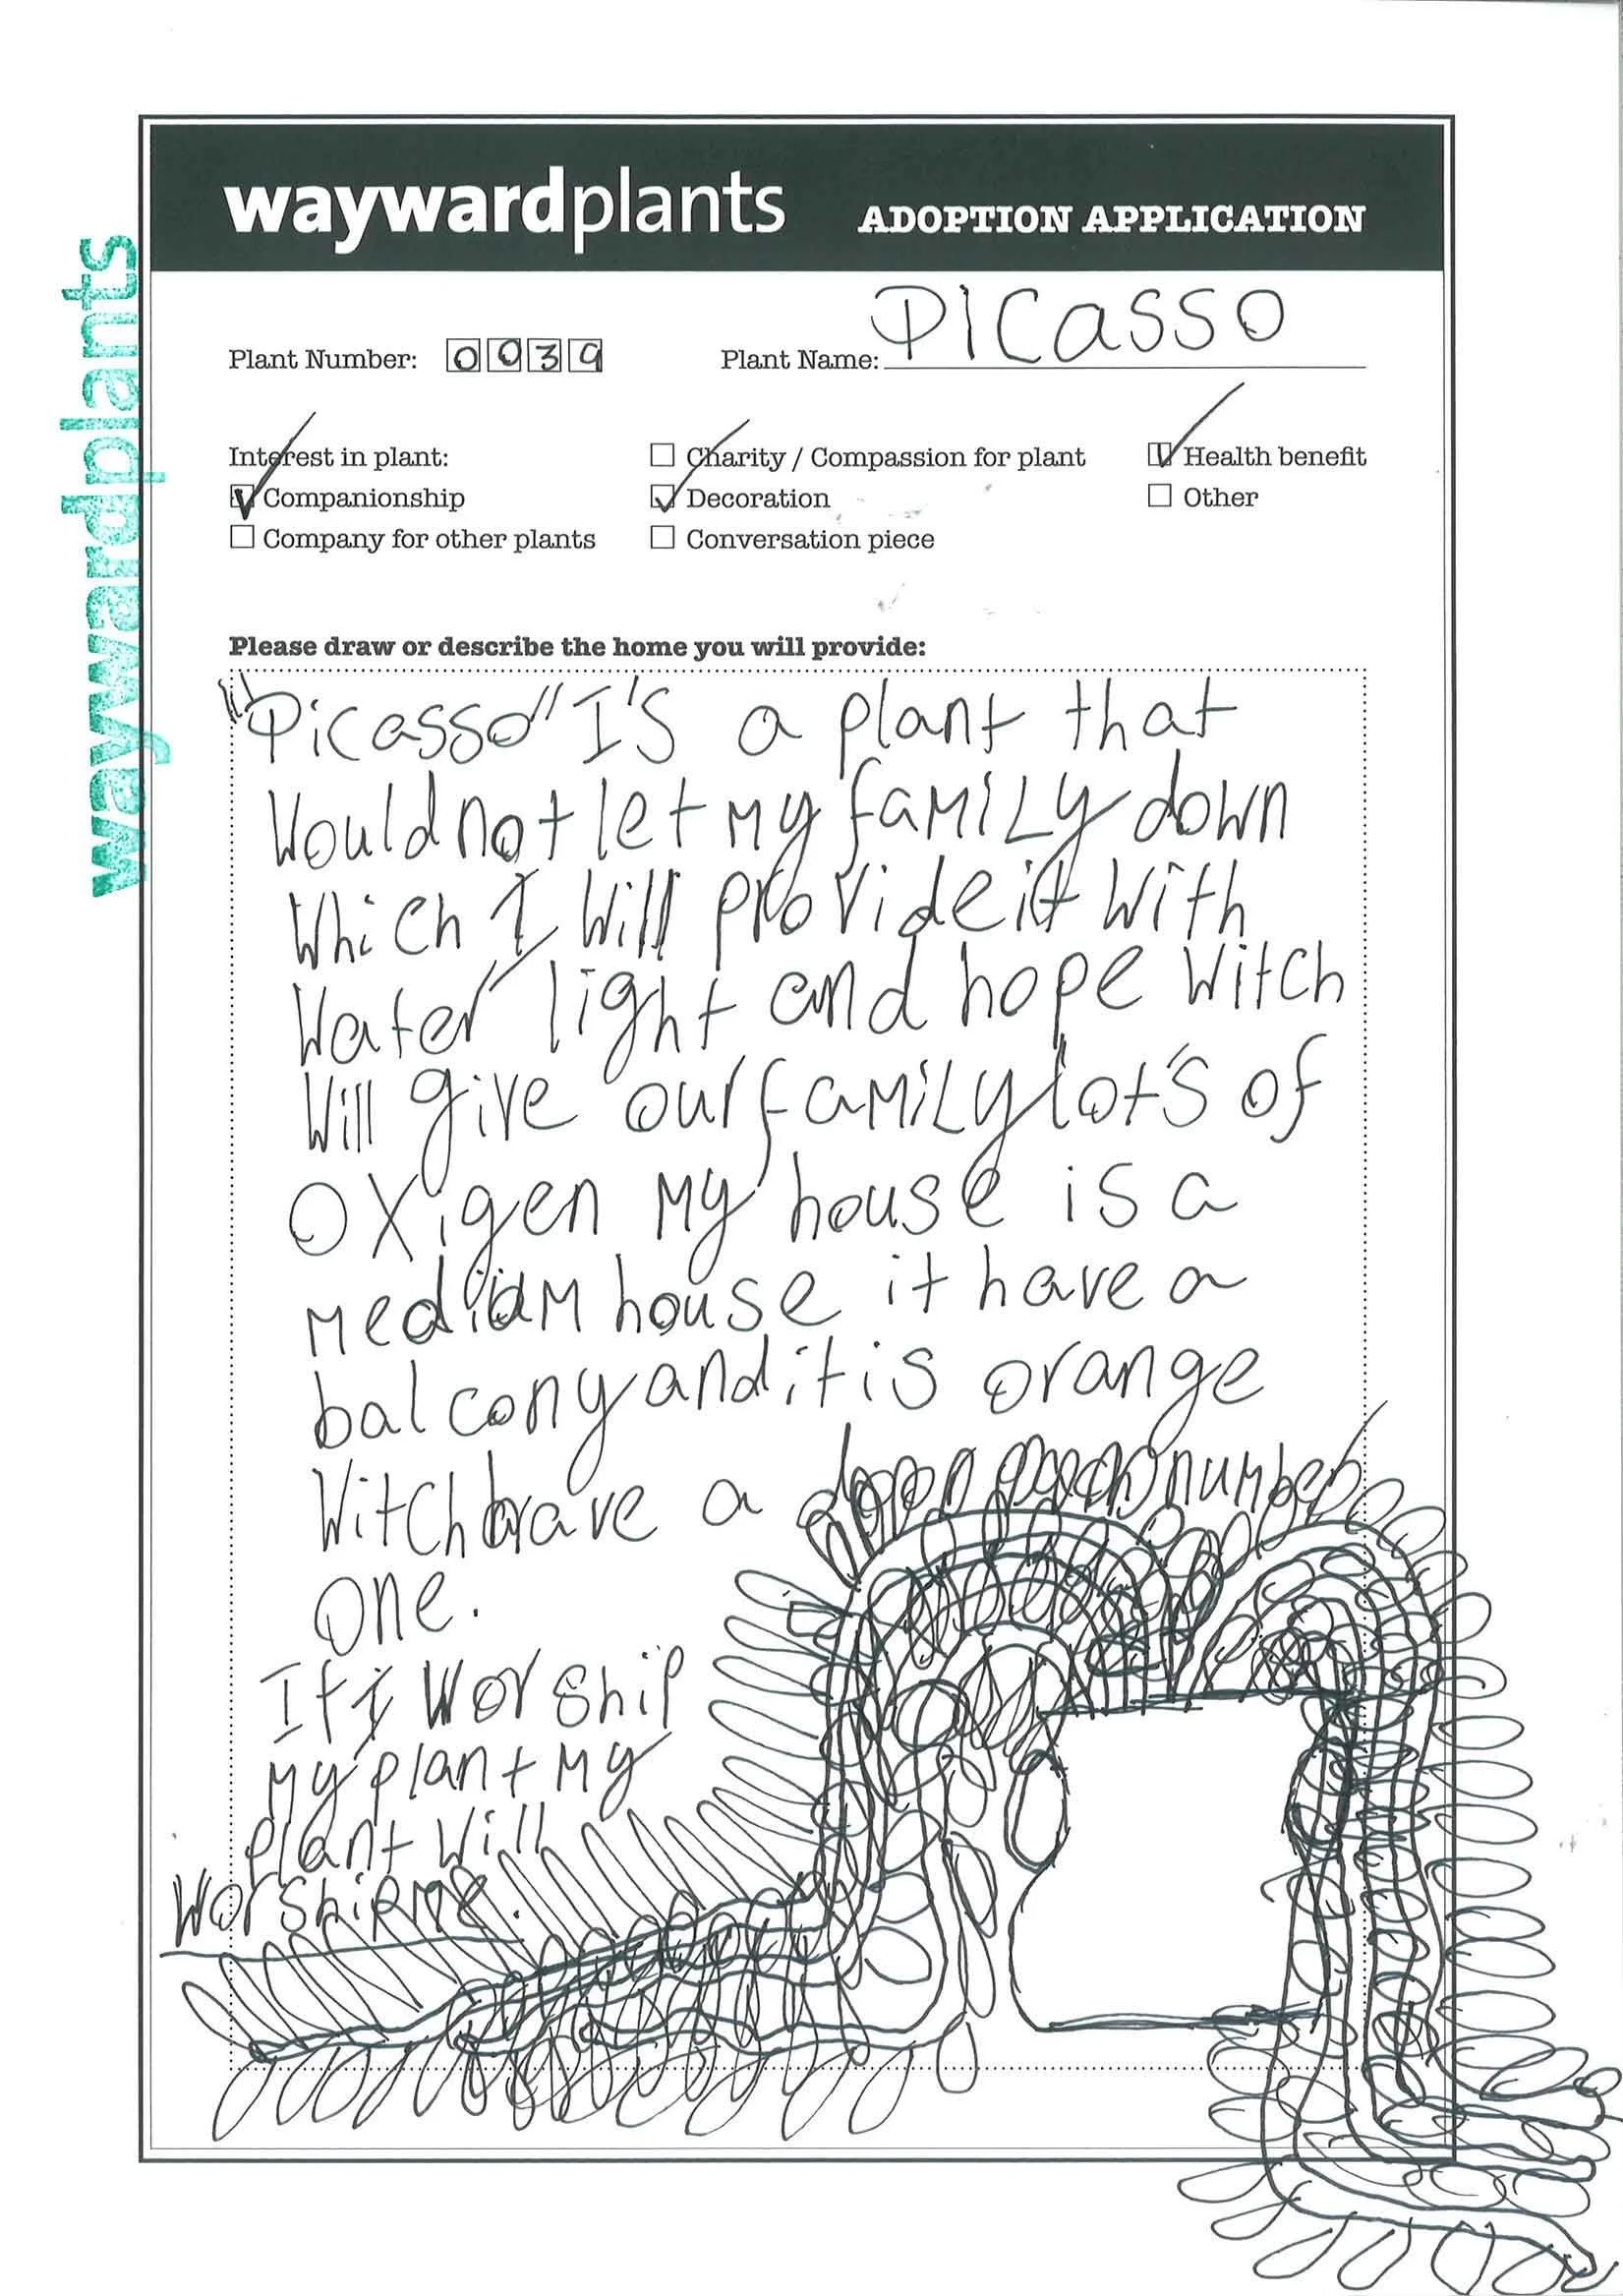 waywardplants ADOPTION APPLICATION
waywardplants
Plant Number: 0039 Plant Name: Picasso
Interest in plant:
Companionship
Company for other plants
Charity / Compassion for plant
Decoration
Conversation piece
Health benefit
Other
Please draw or describe the home you will provide:
"Picasso" I's a plant that
Would not let my family down
Which I Will provide it With
Water light and hope Witch
Will give our family lot's of
oxigen my house is a
mediam house it have a
balcony and it is orange
Witch have a number
one.
If I Worship
my plant my
plant Will
Worship me.